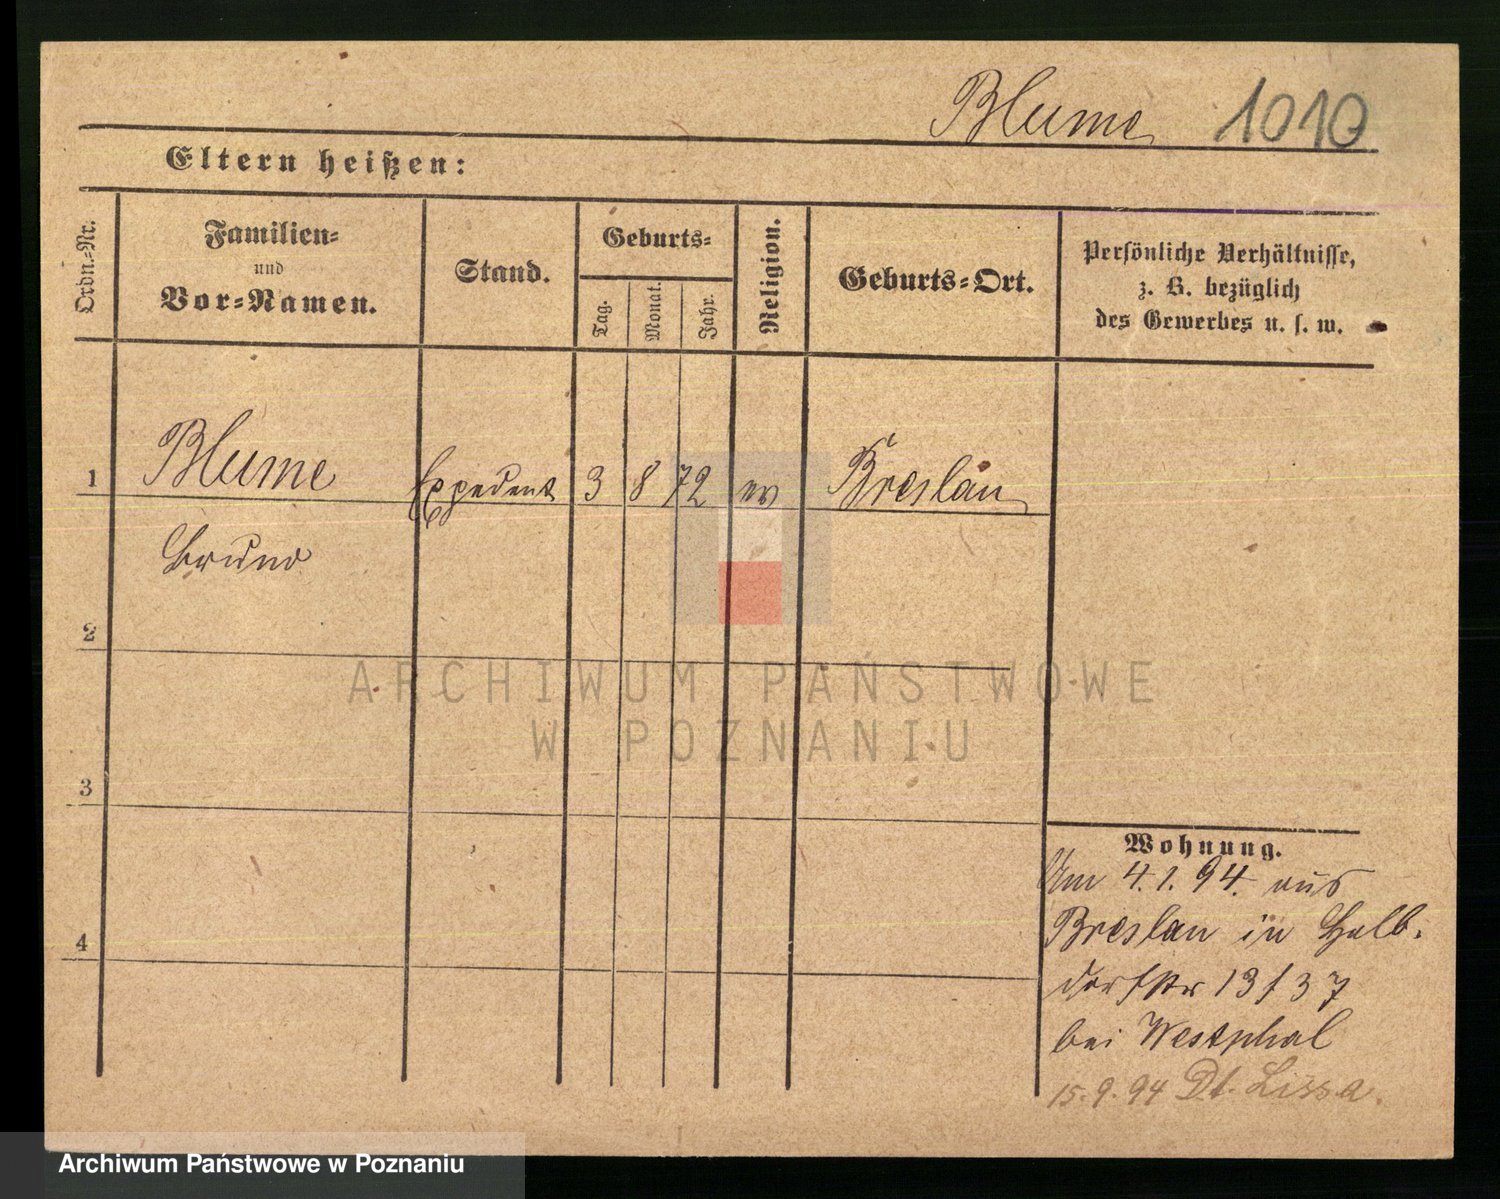 Blume 1010
Eltern heißen:
Ordn.-Nr.
Familien-
und
Vor-Namen.
Stand.
Geburts-
Tag.
Monat.
Jahr.
Religion.
Geburts-Ort.
Persönliche Verhältnisse,
z. B. bezüglich
des Gewerbes u. s. w.
1 Blume Expedient 3 8 72 ev Breslau
Bruno
2
3
4
Wohnung.
Am 4.1.94. aus
Breslau in Halb-
dorfstr 13 / 37
bei Westphal
15.9.94 Dt. Lissa.
ARCHIWUM PAŃSTWOWE
W POZNANIU
Archiwum Państwowe w Poznaniu